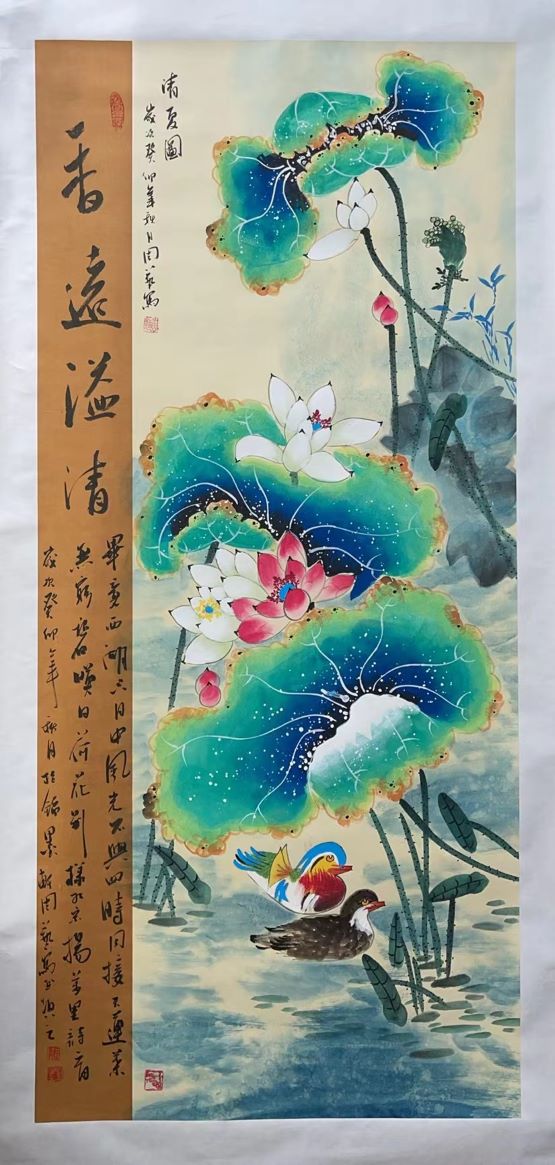 清夏圖
歲次癸卯年秋月周藝寫
香遠溢清
畢竟西湖六月中風光不與四時同接天蓮葉
無窮碧暎日荷花別樣紅楊萬里詩
歲次癸卯年秋月於錦墨軒周藝寫